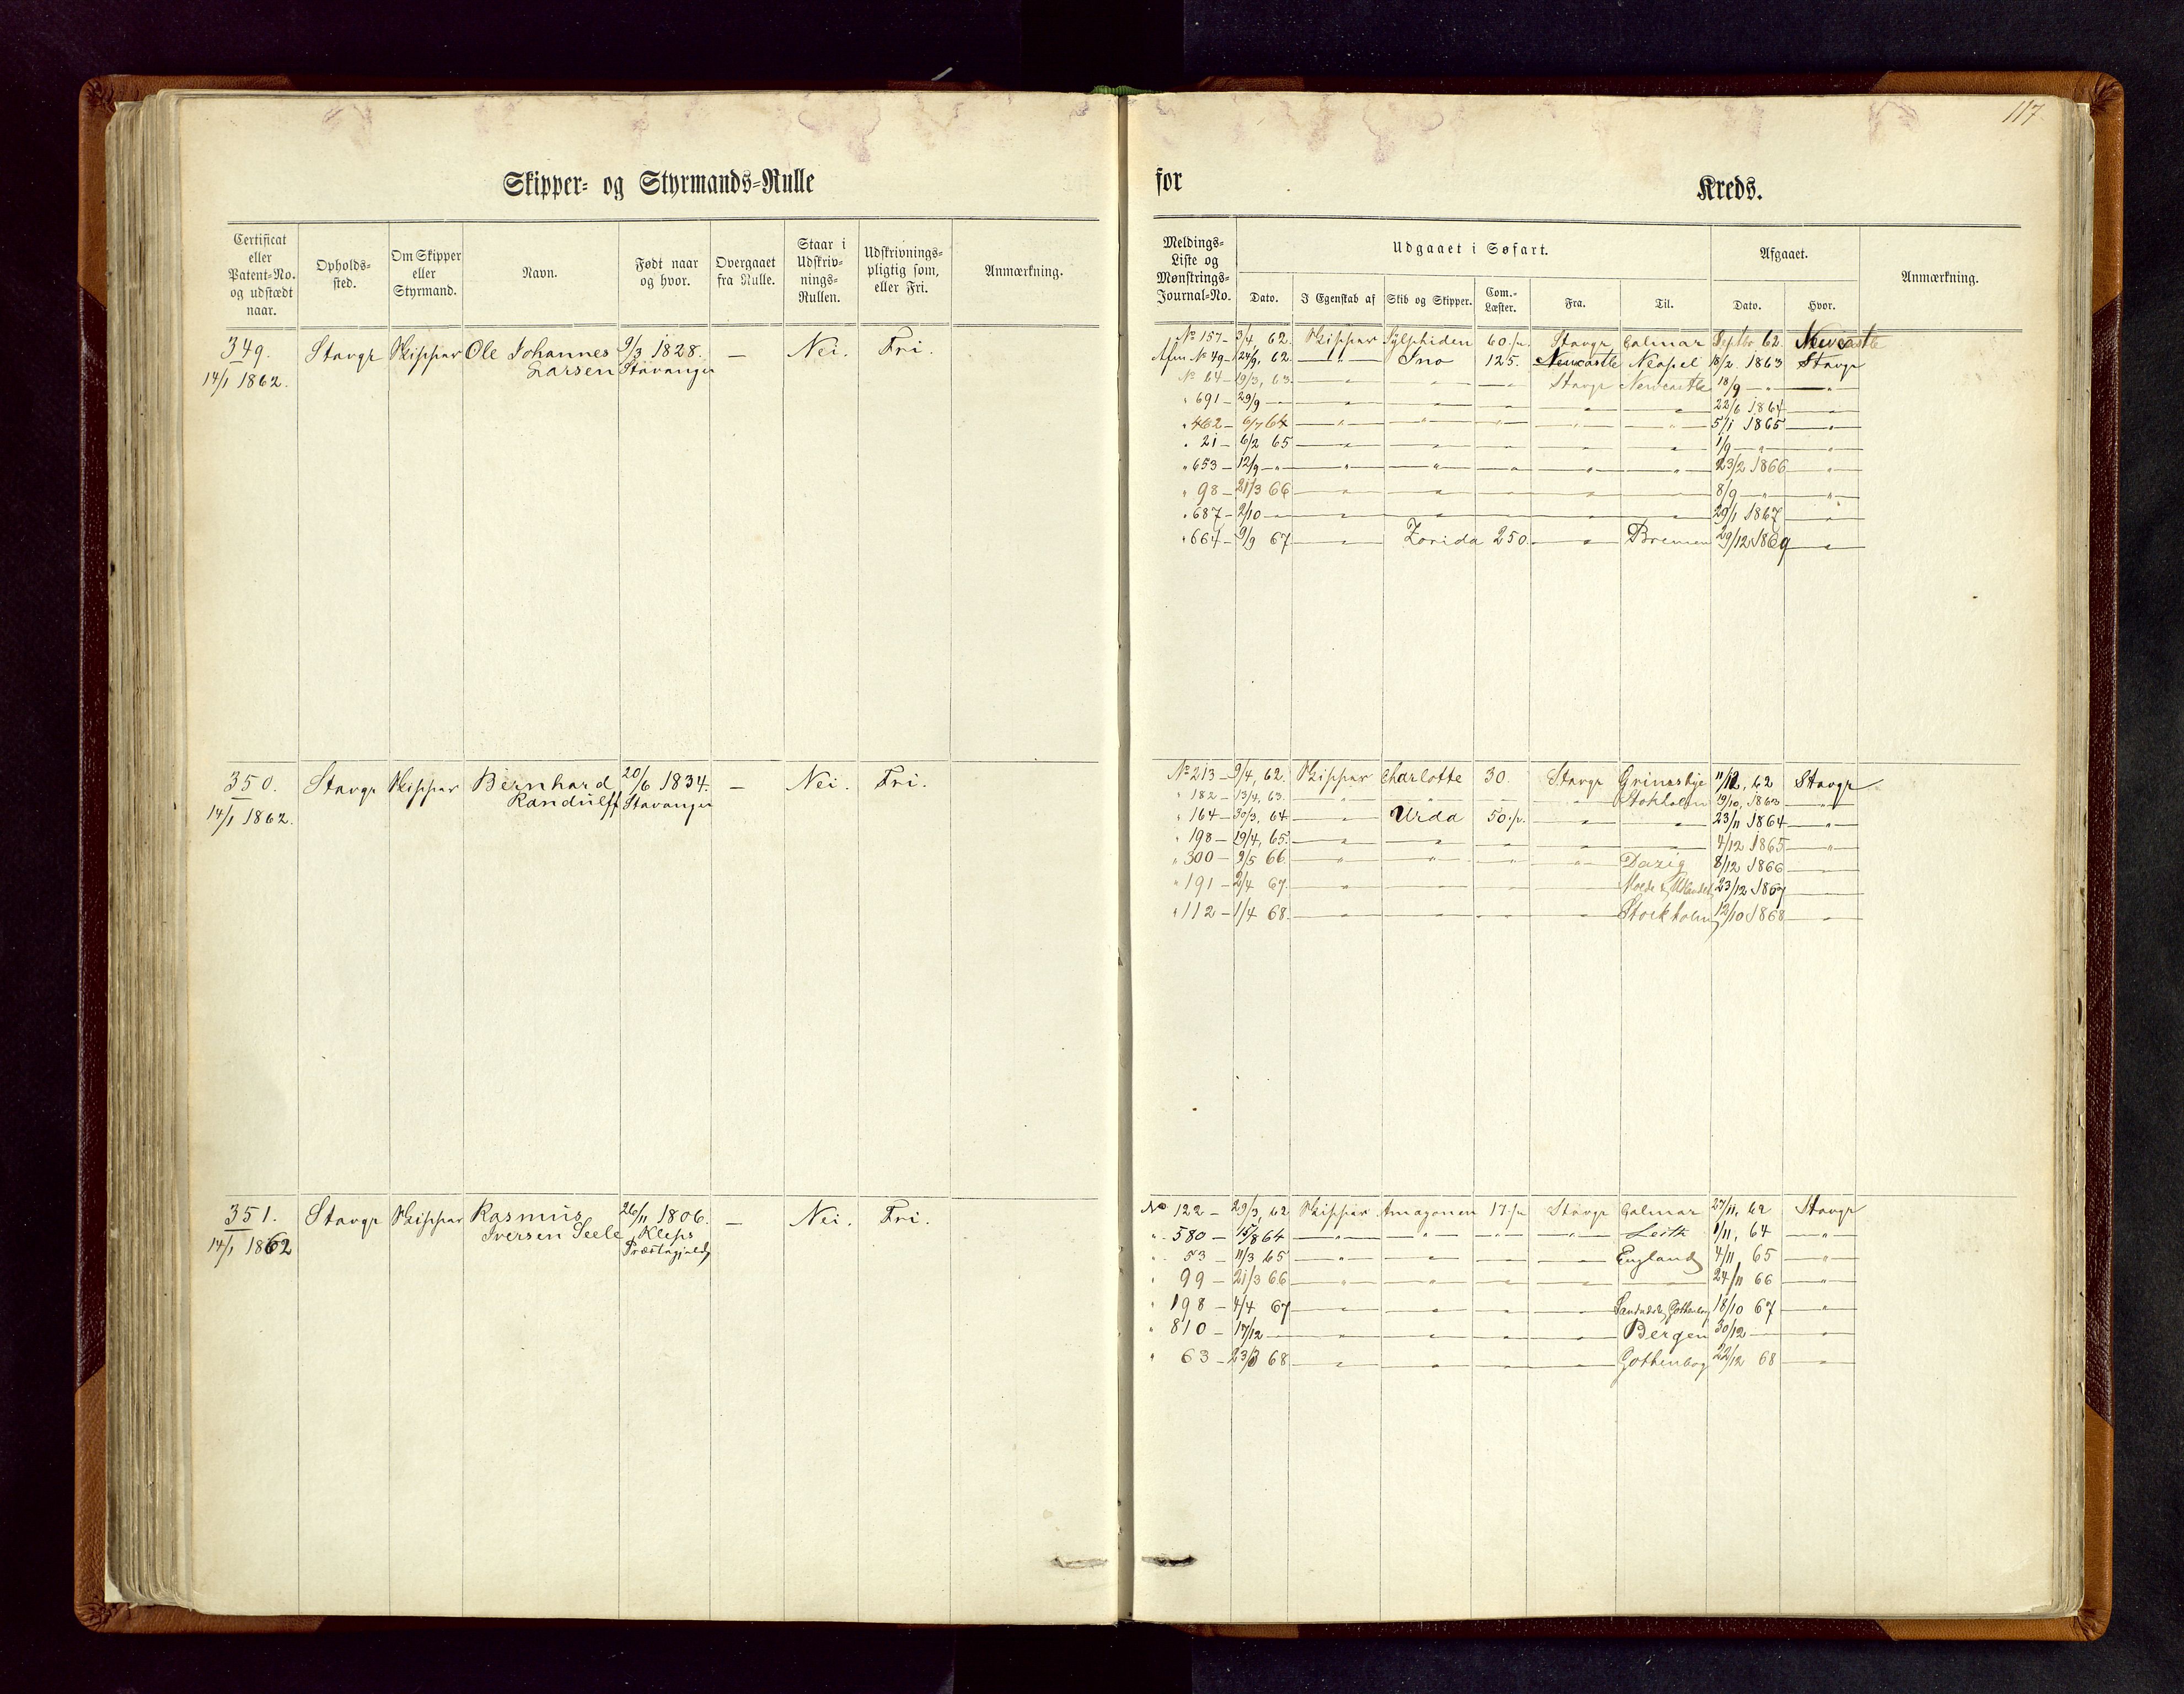 117
Skipper- og Styrmands-Rulle
for
Kreds.
Certificat eller Patent-No. og udstædt naar.
Opholds-sted.
Om Skipper eller Styrmand.
Navn.
Født naar og hvor.
Overgaaet fra Rulle.
Staar i Udskriv-nings-Rullen.
Udskrivnings-pligtig som, eller Fri.
Anmærkning.
Meldings-Liste og Mønstrings-Journal-No.
Udgaaet i Søfart.
Dato.
I Egenskab af
Skib og Skipper.
Com.-Læster.
Fra.
Til.
Afgaaet.
Dato.
Hvor.
Anmærkning.
349. Stavgr Skipper Ole Johannes 9/3 1828. — Nei. Fri.
14/1 1862. Larsen Stavanger
No 157 - 3/4 62. Skipper Sylphiden 60 Stavgr Calmar Septbr 62. Newcastle
No 49 - 24/9, 62. — " — Ino 125. Newcastle Neapel 18/2. 1863 Stavgr
No 64 - 19/3, 63. — " — — " — — " — Stavgr Newcastle 18/9 — " — — " —
" 691 - 29/9 — " — 22/6 1864 — " —
" 462 - 6/7 64 — " — 5/1 1865 — " —
" 21 - 6/2 65 — " — 1/9 — " —
" 653 - 12/9 — " — 23/2 1866 — " —
" 98 - 21/3 66 — " — 8/9 — " —
" 687 - 2/10 — " — 29/1 1867 — " —
" 664 - 9/9 67 — " — Zorida 250. — " — Bremen 29/12 1869 — " —
350. Stavgr Skipper Bernhard 20/6 1834. — Nei. Fri.
14/1 1862. Randulff Stavanger
No 213 - 9/4, 62. Skipper Charlotte 30. Stavgr Grimsbye 11/12, 62 Stavgr
" 182 - 13/4, 63. — " — Stokholm 19/10, 1863 — " —
" 164 - 30/3, 64 — " — Urda 50 — " — 23/11 1864 — " —
" 198 - 19/4, 65. — " — 4/12 1865 — " —
" 300 - 9/5 66 — " — Dazig 8/12 1866 — " —
" 191 - 2/4 67. — " — 23/12 1867 — " —
" 112 - 1/4 68 — " — Stockholm 12/10 1868 — " —
351. Stavgr Skipper Rasmus 26/11 1806. — Nei. Fri.
14/1 1862 Iversen Seele Kleps
Præstegjeld
No 122 - 29/3, 62 Skipper Amazonen 17 Stavgr Calmar 27/11, 62 Stavgr
" 580 - 15/8 64 — " — Leith 1/11, 64 — " —
" 53 - 11/3 65 — " — England 4/11 65 — " —
" 99 - 21/3 66 — " — 24/11 66 — " —
" 198 - 4/4 67 — " — 18/10 67 — " —
" 810 - 17/12 — " — Bergen 30/12 — " —
" 63 - 23/3 68 — " — Gothenborg 22/12 68 — " —